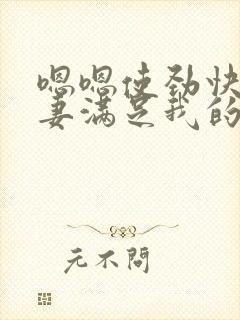 嗯嗯使劲快
妻满足我的
元不問